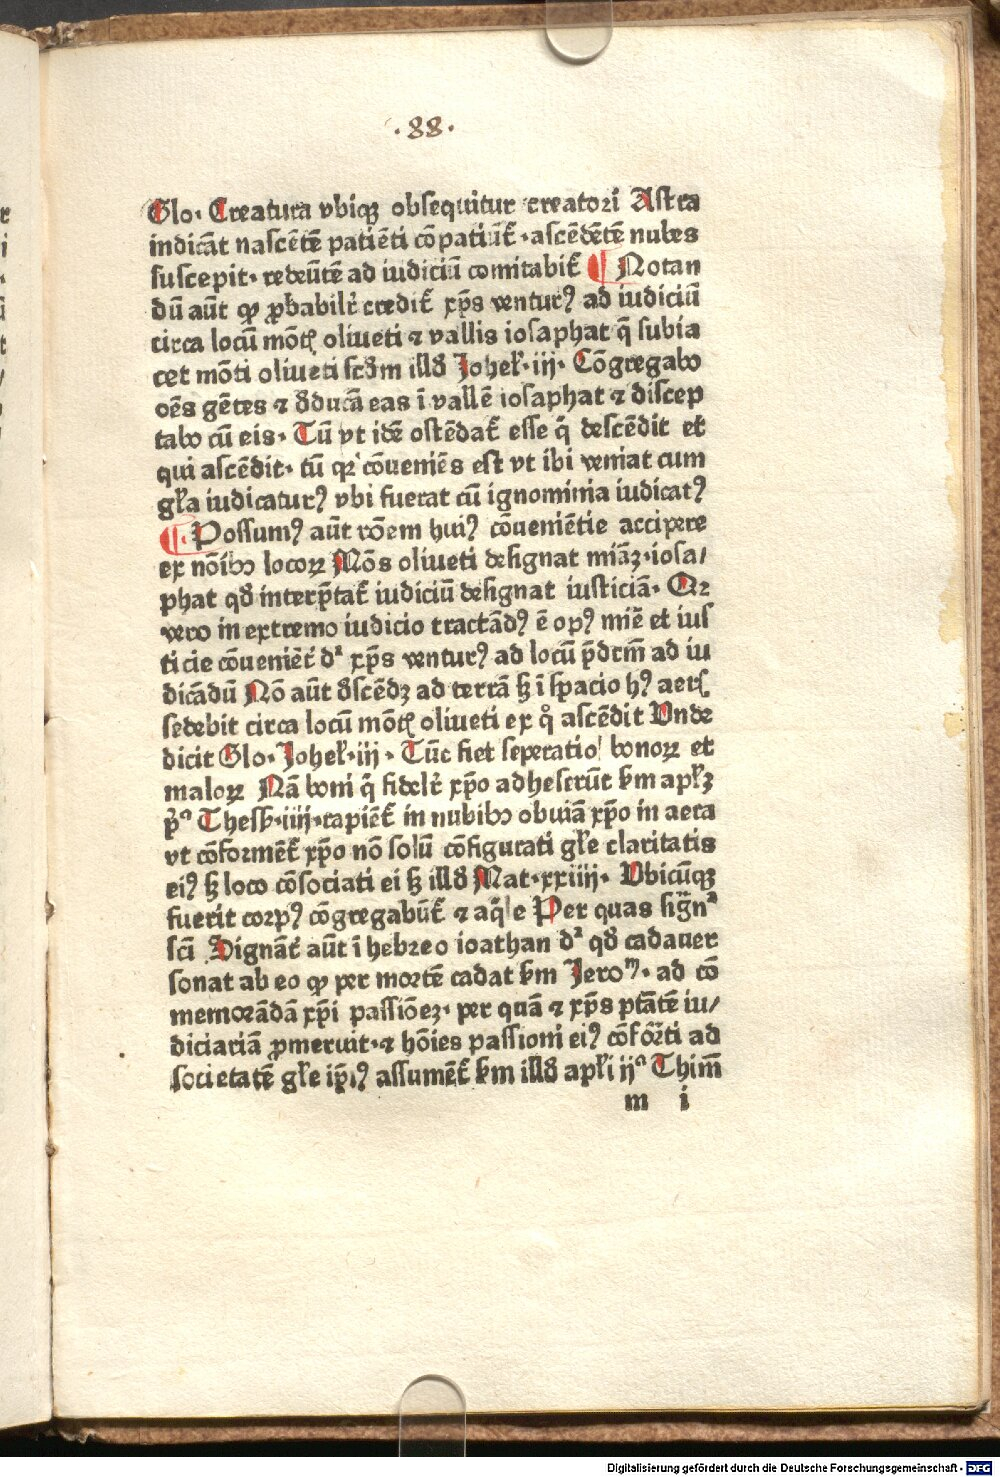 .88.
Glo. Creatura vbiqꝫ obsequitur creatori Astra
indicāt nascētē patiēti cōpatiūt᷑.ascēdētē nubes
suscepit.redeūtē ad iudiciū comitabit᷑ ¶ Notan
dū aūt ꝙ ꝓbabilr̄ credit᷑ xp̄s venturꝰ ad iudiciū
circa locū mōtꝭ oliueti ⁊ vallis iosaphat q̄ subia
cet mōti oliueti scd̄m illđ Johel̄.iij. Cōgregabo
oēs gētes ⁊ đducā eas ī vallē iosaphat ⁊ discep
tabo cū eis. Tū vt idē ostēdat᷑ esse qͥ descēdit et
qui ascēdit. tū qꝛ cōueniēs est vt ibi veniat cum
gl̄a iudicaturꝰ vbi fuerat cū ignominia iudicatꝰ
¶. Possumꝰ aūt rōem huiꝰ cōueniētie accipere
ex nōibꝫ locoꝝ Mōs oliueti designat miāꝫ.iosa/
phat qđ interp̄tat᷑ iudiciū designat iusticiā. Qꝛ
vero in extremo iudicio tractādꝰ ē opꝰ miē et ius
ticie cōueniēt᷑ dꝛ xp̄s venturꝰ ad locū p̄dcm̄ ad iu
dicādū Nō aūt đscēdꝫ ad terrā sꝫ ī spacio hꝰ aerꝭ
sedebit circa locū mōtꝭ oliueti ex qͦ ascēdit Vnde
dicit Glo. Johel̄.iij. Tūc fiet seperatio bonoꝝ et
maloꝝ Nā boni qͥ fidelr̄ xp̄o adheserūt ẜm apl̄ꝫ
p̄ᵃ Thesẜ.iiij.rapiēt᷑ in nubibꝫ obuiā xp̄o in aera
vt cōformēt᷑ xp̄o nō solū cōfigurati gl̄e claritatis
eiꝰ sꝫ loco cōsociati ei sꝫ illđ Mat.xxiiij. Vbicūqꝫ
fuerit corpꝰ cōgregabūt᷑ ⁊ aqͥle Per quas sign̄ꝛ
scī Dignāt᷑ aūt ī hebreo ioathan dꝛ qđ cadauer
sonat ab eo ꝙ per mortē cadat ẜm Jeroᵐ. ad cō
memorādā xp̄i passiōeꝫ. per quā ⁊ xp̄s ptātē iu/
diciariā ꝓmeruit.⁊ hōies passioni eiꝰ cōfōrti ad
societatē gl̄e ip̄iꝰ assumēt᷑ ẜm illđ apl̄i ijᵃ Thim̄
m i
Digitalisierung gefördert durch die Deutsche Forschungsgemeinschaft - DFG